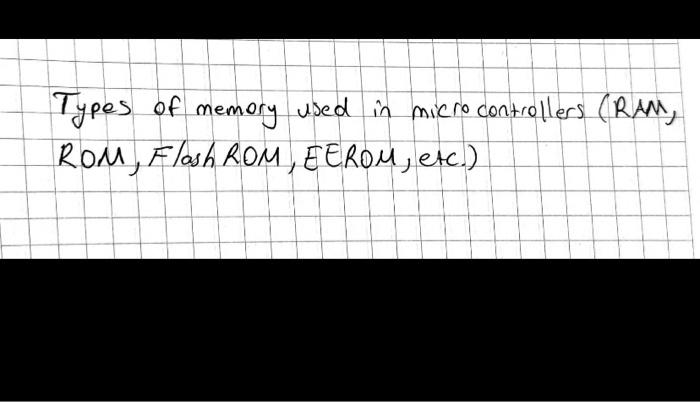 Types of memory used in microcontrollers (RAM,
ROM, Flash ROM, EEROM, etc.)